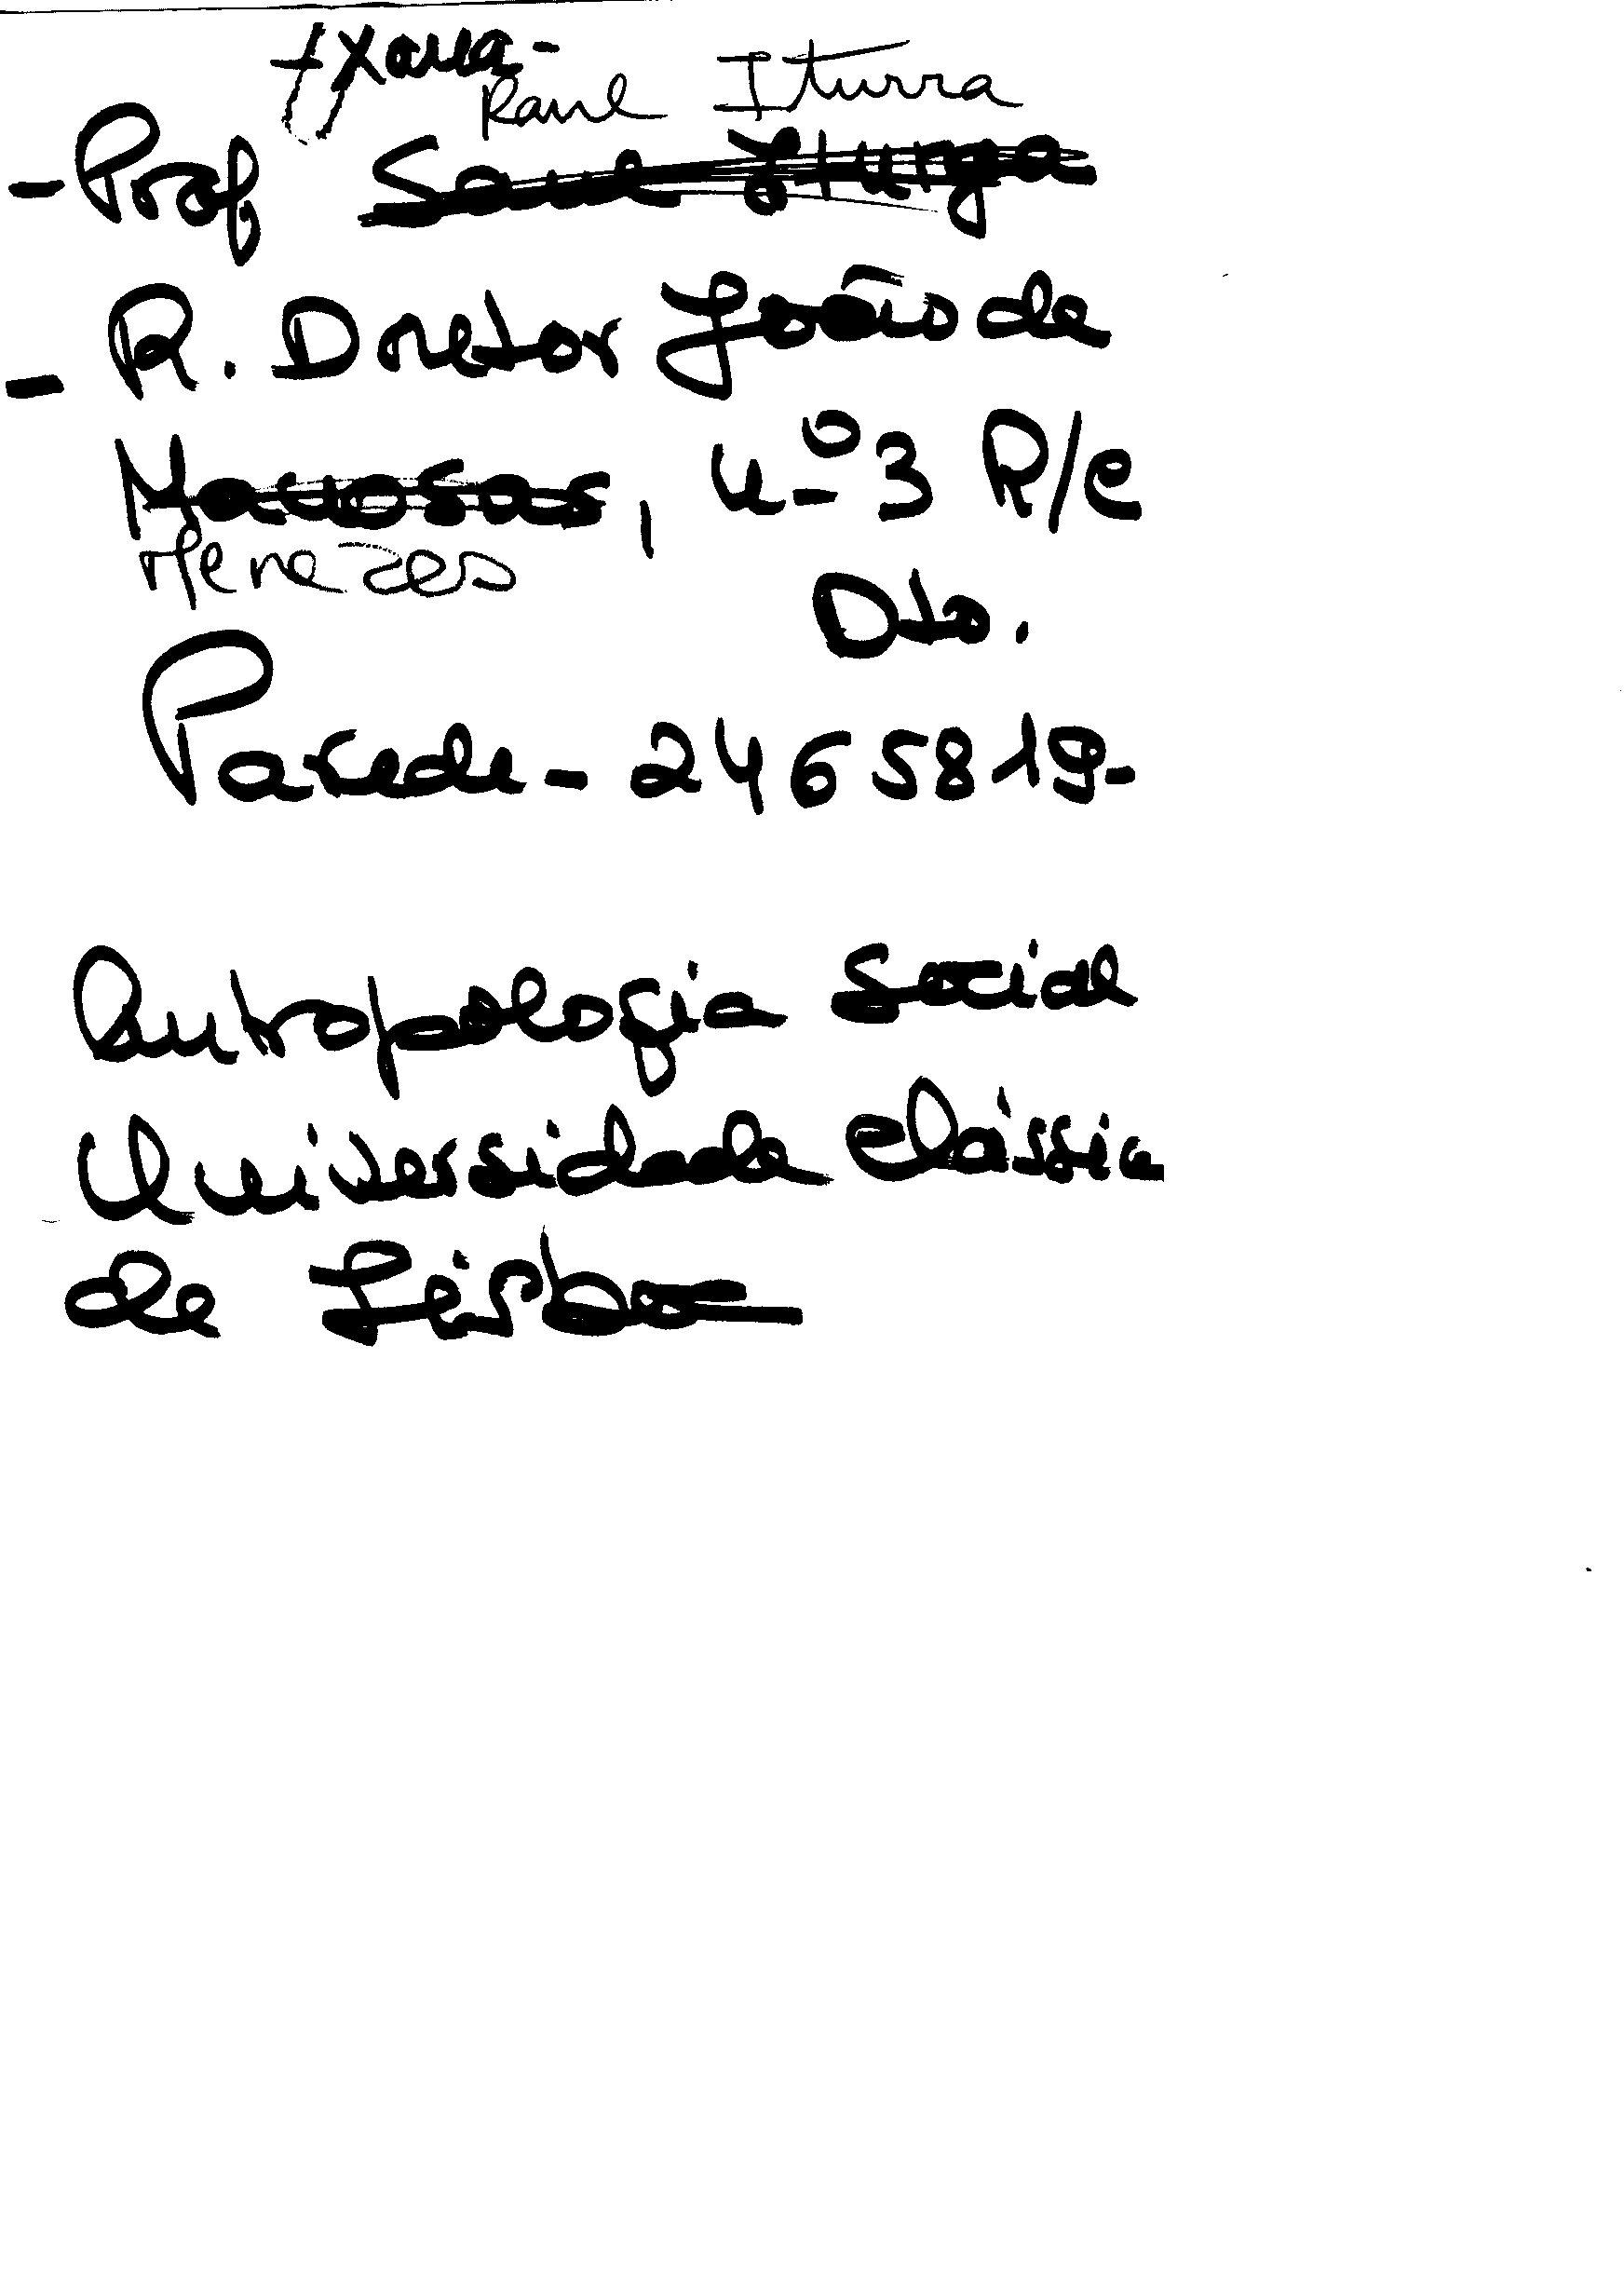 Raul Iturra
- Prof Saul Iturga
- R. Doutor João de
Mauosas, nº 3 R/c
Menezes
Dto.
Parede - 2465819-
Antropologia Social
Universidade Clássica
de Lisboa